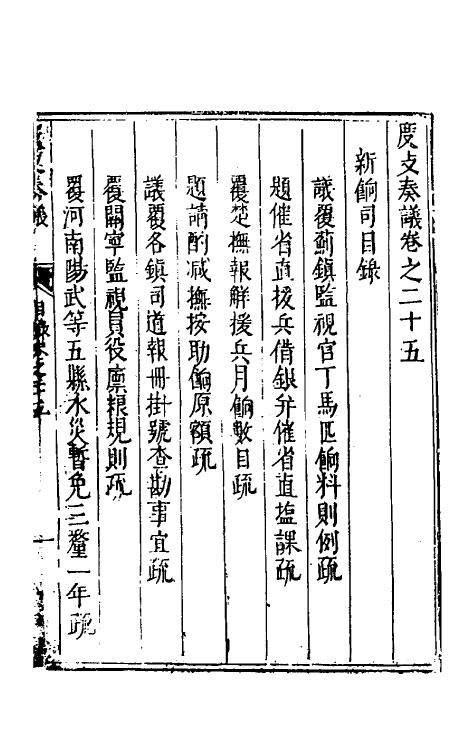 度支奏議卷之二十五
新餉司目錄
議覆薊鎮監視官丁馬匹餉料則例疏
題催省直援兵借銀并催省直塩課疏
覆楚撫報解援兵月餉數目疏
題請酌减撫按助餉原額疏
議覆各鎮司道報冊掛號查勘事宜疏
覆關寧監視員役廩粮規則疏
覆河南陽武等五縣水災暫免三釐一年疏
度支奏議
目錄卷之二十五
一